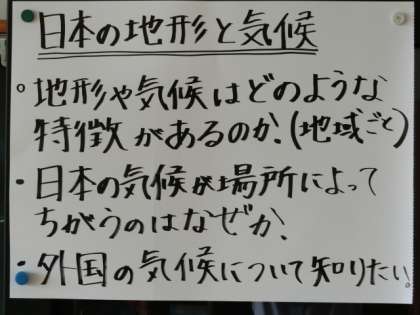 日本の地形と気候
。地形や気候はどのような
特徴があるのか。(地域ごと)
・日本の気候が場所によって
ちがうのはなぜか。
・外国の気候について知りたい。